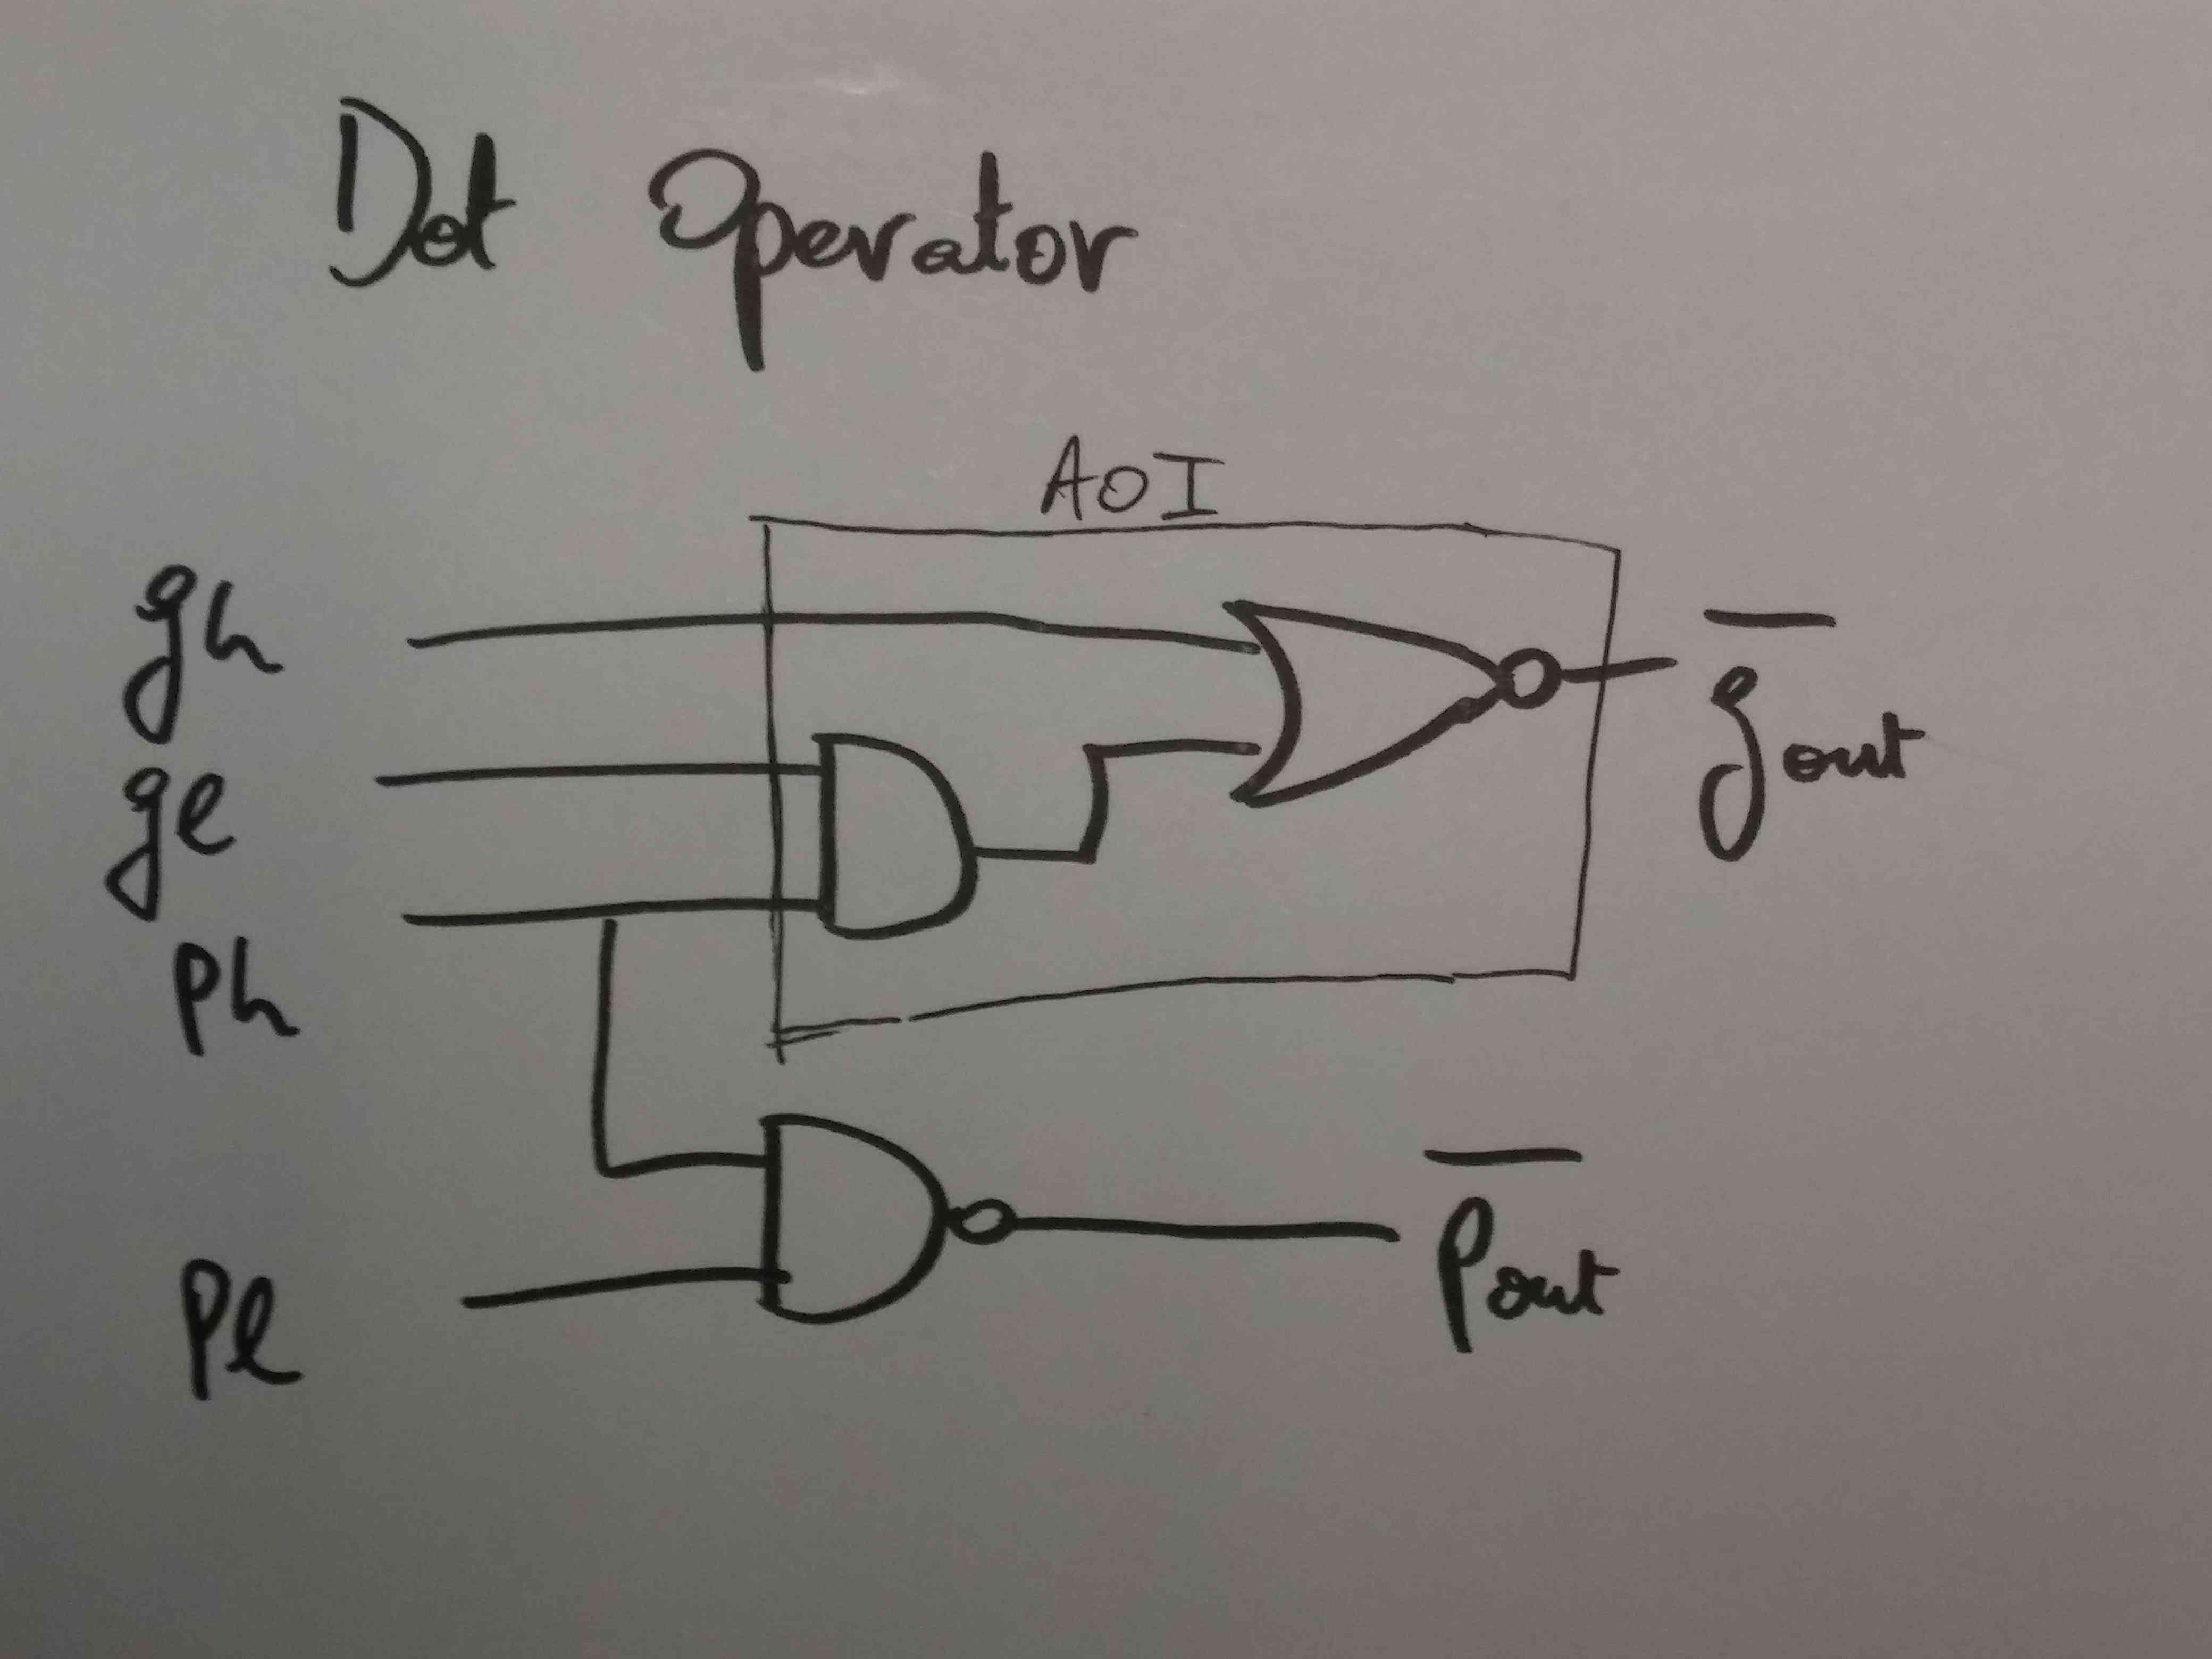 Dot Operator
AOI
gh
gl
ph
pl
g̅out
p̅out